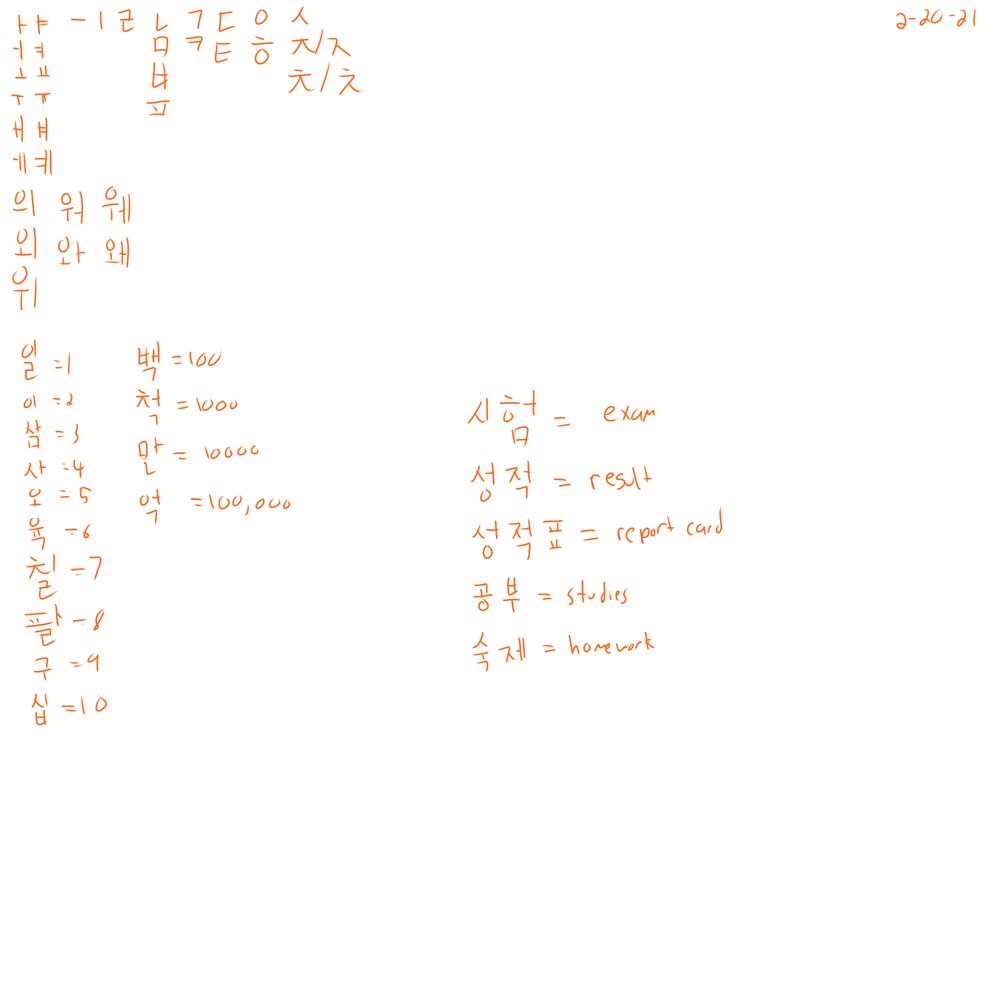 ㅏ ㅑ ㅡ ㅣ ㄹ ㄴ ㄱ ㄷ ㅇ ㅅ 2-20-21
ㅓ ㅕ ㅁ ㅋ ㅌ ㅎ ㅈ/ㅈ
ㅗ ㅛ ㅂ ㅊ/ㅊ
ㅜ ㅠ ㅍ
ㅐ ㅒ
ㅔ ㅖ
의 워 웨
외 와 왜
위
일 =1 백 =100
이 =2 척 =1000
삼 =3 만 = 10000
사 =4 억 =100,000
오 =5
육 =6
칠 =7
팔 =8
구 =9
십 =10
시험 = exam
성적 = result
성적표 = report card
공부 = studies
숙제 = homework